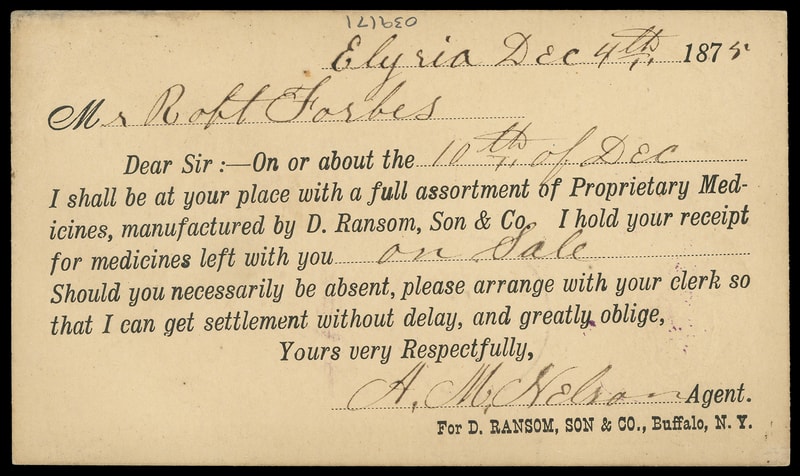 039171
Elyria Dec 4th 1875
Mr Robt Forbes
Dear Sir :—On or about the 10th of Dec
I shall be at your place with a full assortment of Proprietary Med-
icines, manufactured by D. Ransom, Son & Co. I hold your receipt
for medicines left with you on Sale
Should you necessarily be absent, please arrange with your clerk so
that I can get settlement without delay, and greatly oblige,
Yours very Respectfully,
A. M. Nelson Agent.
For D. RANSOM, SON & CO., Buffalo, N. Y.